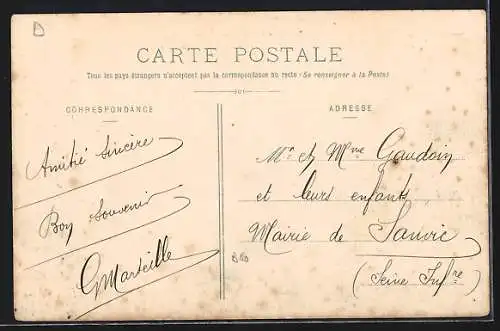 D
CARTE POSTALE
Tous les pays étrangers n'acceptent pas la correspondance au recto (Se renseigner à la Poste)
CORRESPONDANCE
ADRESSE
Amitié sincère
Bon Souvenir
GMarteille
Mr et Mme Gaudoin
et leurs enfants
Mairie de Sanvic
(Seine Infre)